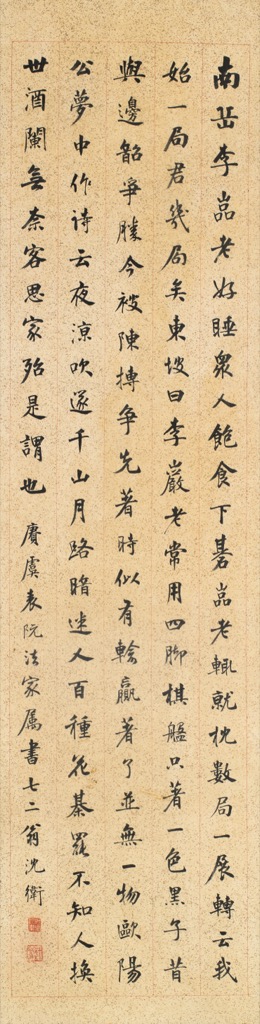 南岳李嵓老好睡衆人飽食下碁嵓老輒就枕數局一展轉云我
始一局君幾局矣東坡曰李巖老常用四脚棋盤只著一色黑子昔
與邊韶爭勝今被陳摶争先著時似有輸贏著了並無一物歐陽
公夢中作詩云夜凉吹邃千山月路暗迷人百種花棊罷不知人換
世酒闌無奈客思家殆是謂也 賡虞表阮法家属書七二翁沈衛